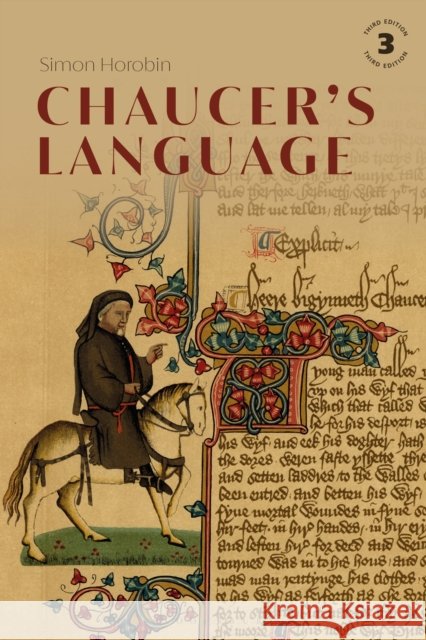 Simon Horobin
THIRD EDITION
3
THIRD EDITION
CHAUCER'S
LANGUAGE
this murye tale
and therfore herkneth What
and lat me tellen al my tale I
Explicit
Heere bigynneth Chaucer
yong man called
up on his Wyf that
Which that called
for his desport is
his Wyf and eek his doghter hath
the dores Weren faste yshette
and setten laddres to the Walles
been entred and betten his Wyf
fyue mortal Woundes in fyue
hir feet in hir handes in hir
and leften hir for deed and
torned Was in to his hous and
mad man rentynge his clothes
as ferforth
for to